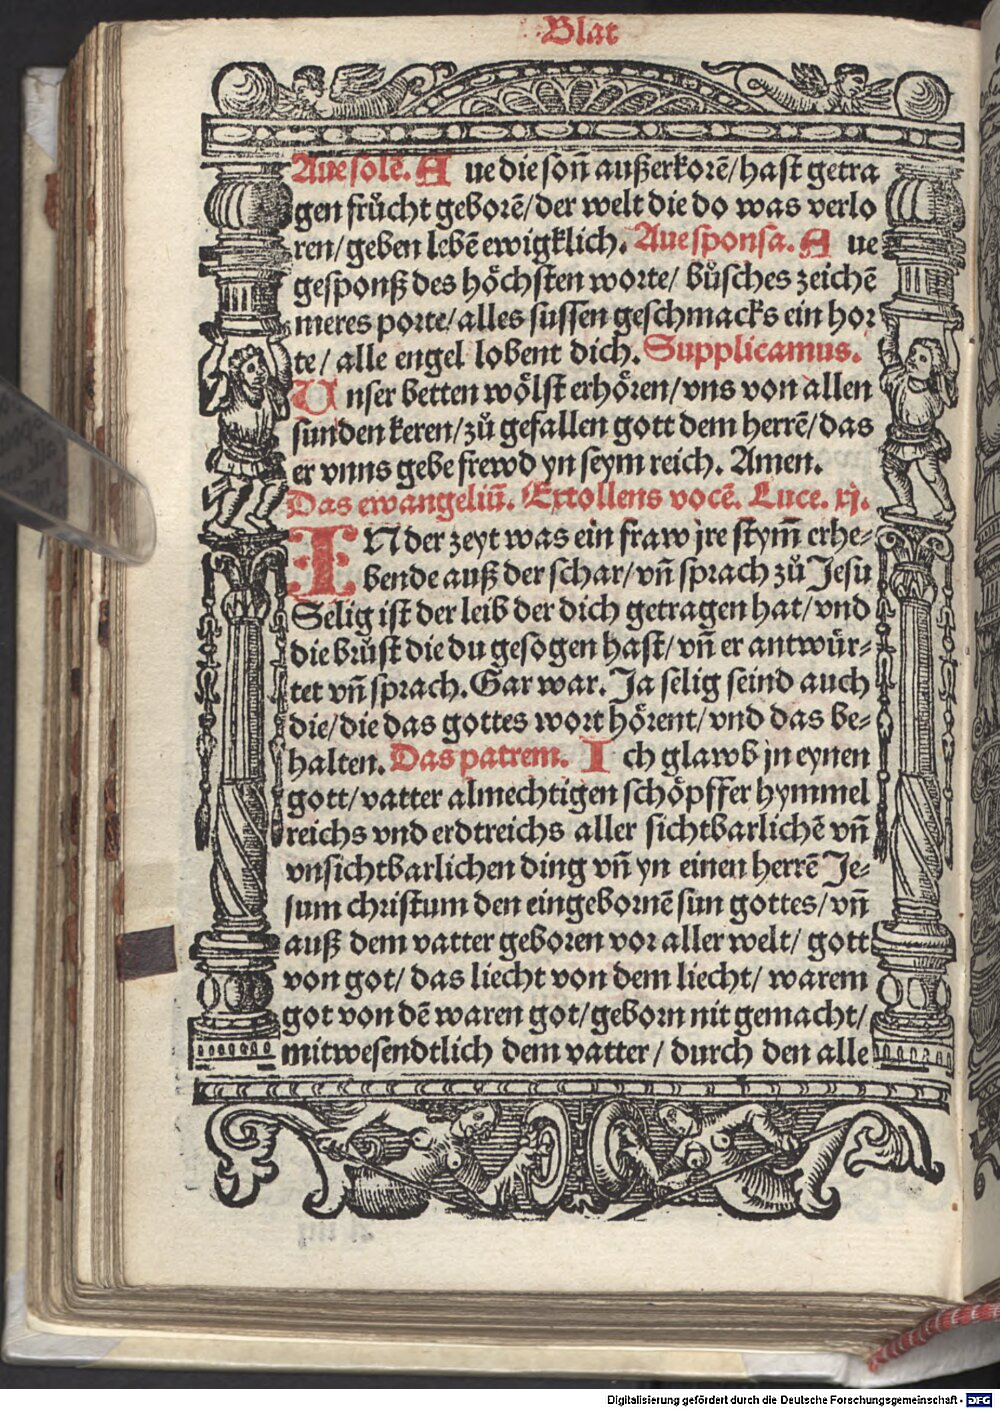 Blat
Aue solē. A ue die soñ außerkorē/hast getra
gen frůcht geborē/der welt die do was verlo
ren/geben lebē ewigklich. Aue sponsa. A ue
gesponß des höchsten worte/ bůsches zeichē
meres porte/alles sussen geschmacks ein hor
te/ alle engel lobent dich. Supplicamus.
Unser betten wölst erhören/vns von allen
sunden keren/zů gefallen gott dem herrē/das
er vnns gebe frewd yn seym reich. Amen.
Das ewangeliū. Extollens vocē. Luce. xj.
IN der zeyt was ein fraw jre stym̄ erhe⸗
bende auß der schar/vñ sprach zů Jesu
Selig ist der leib der dich getragen hat/vnd
die brůst die du gesogen hast/vñ er antwür⸗
tet vñ sprach. Gar war. Ja selig seind auch
die/die das gottes wort hörent/vnd das be⸗
halten. Das patrem. I ch glawb jn eynen
gott/vatter almechtigen schöpffer hymmel
reichs vnd erdtreichs aller sichtbarlichē vñ
vnsichtbarlichen ding vñ yn einen herrē Je⸗
sum christum den eingebornē sun gottes/vñ
auß dem vatter geboren vor aller welt/ gott
von got/ das liecht von dem liecht/ warem
got von dē waren got/geborn nit gemacht/
mitwesendtlich dem vatter/ durch den alle
Digitalisierung gefördert durch die Deutsche Forschungsgemeinschaft - DFG